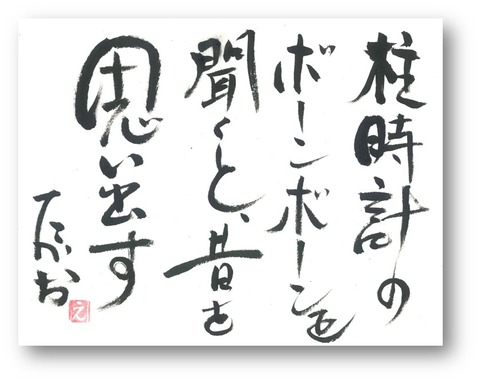 柱時計の
ボーンボーンを
聞くと、昔を
思い出す
たかお
え